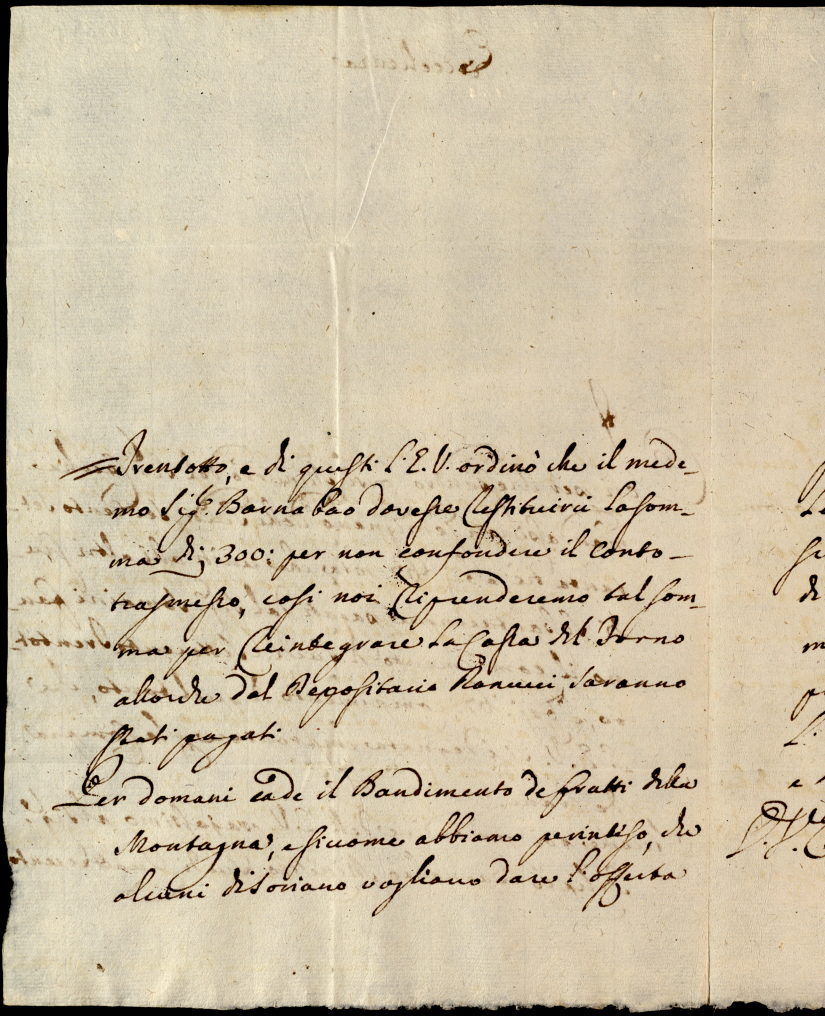 Trentotto, e di questi l'E. V. ordinò che il mede-
mo Sig.r Barnabao dovesse restituirci la som-
ma di 300: per non confondere il conto
trasmesso, così noi riprenderemo tal som-
ma per reintegrare la Cassa del Forno
allorche dal Depositario Ranucci saranno
stati pagati
Per domani cade il Bandimento de frutti della
Montagna, e siccome abbiamo perinteso, che
alcuni di Soriano vogliano dare l'offerta